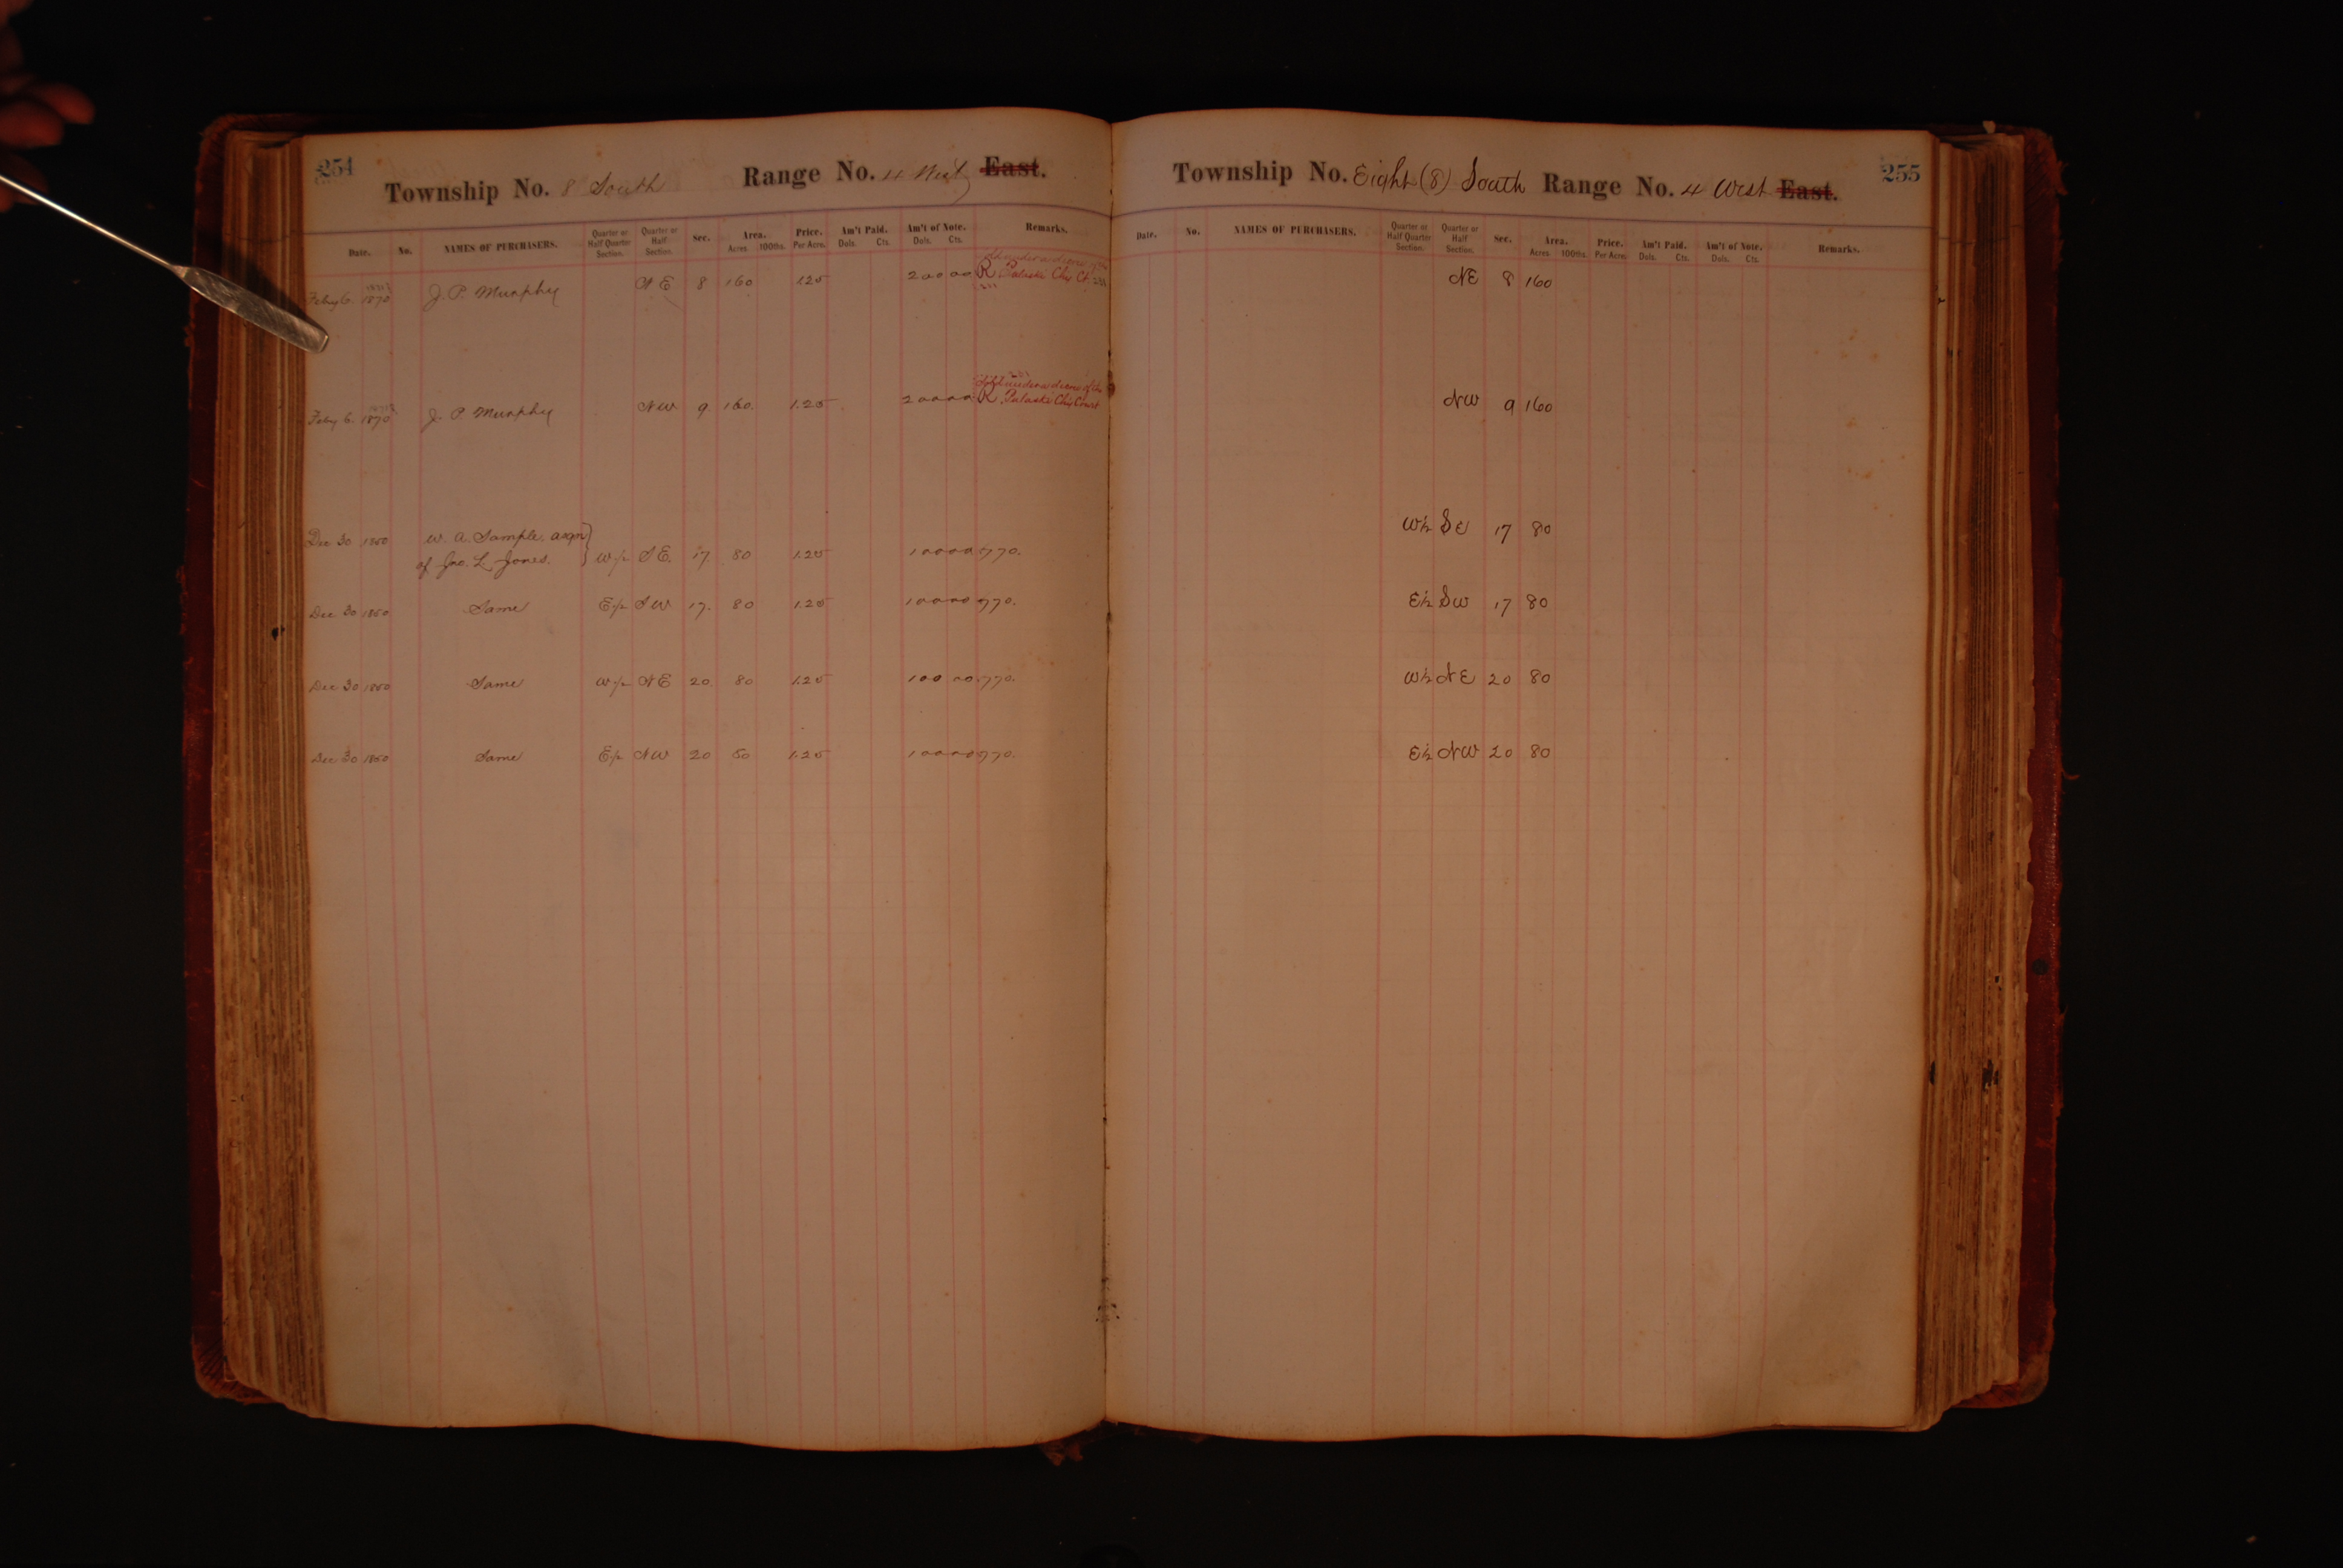 254
Township No. 8 South Range No. 4 West East.
Date. No. NAMES OF PURCHASERS. Quarter or Half Quarter Section. Quarter or Half Section. Sec. Area. Acres 100ths. Price. Per Acre. Am't Paid. Dols. Cts. Am't of Note. Dols. Cts. Remarks.
Feby 6. 1870 J. P. Murphy N E 8 160 1.25 200 00 R Pulaski Chy Ct.
Feby 6. 1870 J. P. Murphy NW 9 160. 1.25 200 00 R Pulaski Chy Court
Dec 30 1850 W. A. Sample, asgn
of Jno. L. Jones. W/2 S E. 17. 80 1.25 100 00 770.
Dec 30 1850 Same E/2 S W 17. 80 1.25 100 00 770.
Dec 30 1850 Same W/2 N E 20. 80 1.25 100 00 770.
Dec 30 1850 Same E/2 N W 20 80 1.25 100 00 770.
255
Township No. Eight (8) South Range No. 4 West East.
Date. No. NAMES OF PURCHASERS. Quarter or Half Quarter Section. Quarter or Half Section. Sec. Area. Acres 100ths. Price. Per Acre. Am't Paid. Dols. Cts. Am't of Note. Dols. Cts. Remarks.
NE 8 160
NW 9 160
W½ SE 17 80
E½ SW 17 80
W½ NE 20 80
E½ NW 20 80